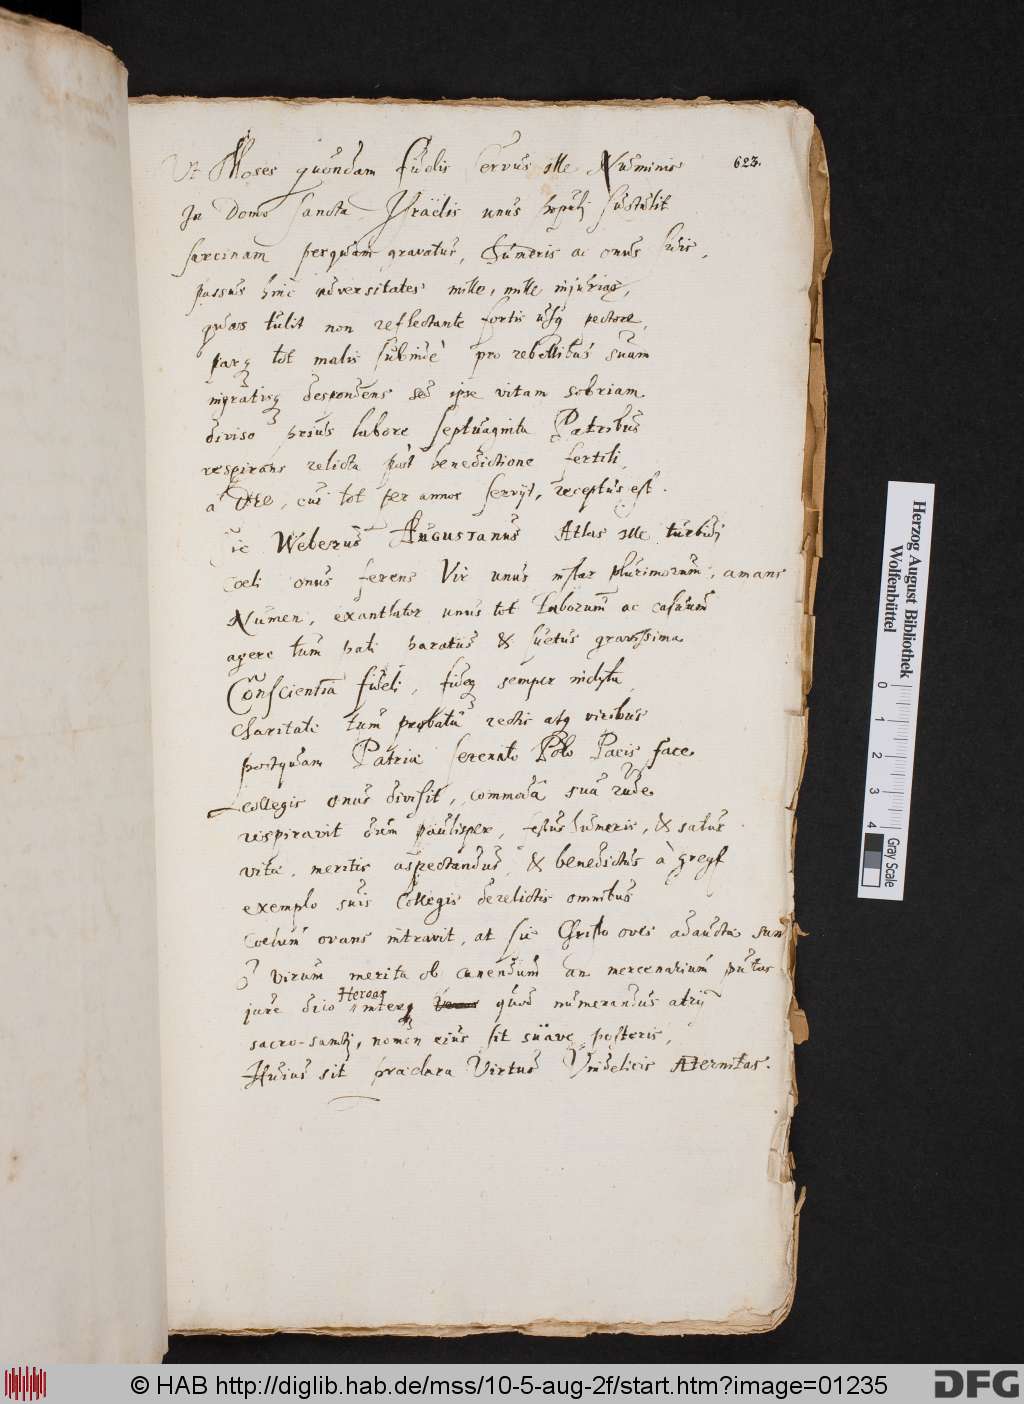 623.
Ut Moses quondam fidelis servus ille Numinis
In Domo sancta Israëlis unus populi sustulit
sarcinam perquam gravatus, humeris ac onus suis,
passus hinc adversitates mille, mille injurias,
quas tulit non reflectante fortis usq pectore,
parq tot malis subinde pro rebellibus suam
ingratisq despondens sed ipse vitam sobriam
diviso prius labore septuaginta Patribus
respirans relicta post benedictione fertili,
a Deo, cui tot per annos servijt, receptus est.
Sic Weberus Augustanus Atlas ille turbidi
coeli onus ferens Vir unus instar plurimorum, amans
Numen, exantlator unus tot laborum ac casuum
agere tum pati paratus & suetus gravissima
Conscientia fideli, fideq semper inclyta,
Charitate tum probatus rectis atq viribus
postquam Patriae serenato Polo Pacis face
collegis onus divisit, commoda sua rude
respiravit dum paulisper, fessus humeris, & satur
vitae, meritis aspectandus, & benedictus à grege
exemplo suis Collegis derelictis omnibus
Coelum ovans intravit, at sic Christo oves adauctae sunt
O virum merita ob canendum an mercenarium putas
jure dico Heroas interq quod numerandus atrij
sacro-sancti, nomen ejus sit süave posteris,
Hujus sit praeclara Virtus Vindelicis Aeternitas.
Herzog August Bibliothek
Wolfenbüttel
0 1 2 3 4
Gray Scale
© HAB http://diglib.hab.de/mss/10-5-aug-2f/start.htm?image=01235
DFG